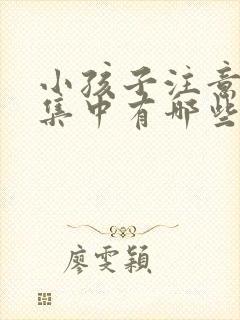 小孩子注意
集中有哪些
廖雯颖